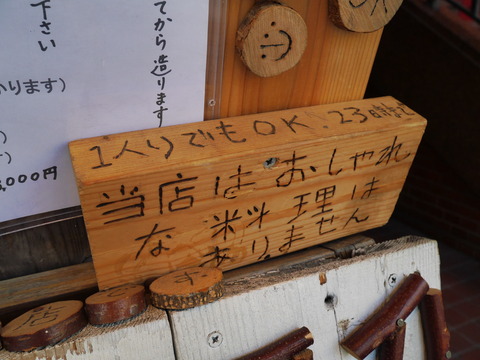 下さい
てから造ります
ります)
,000円
1人りでもOK.23時まで
当店はおしゃれ
な料理は
ありません